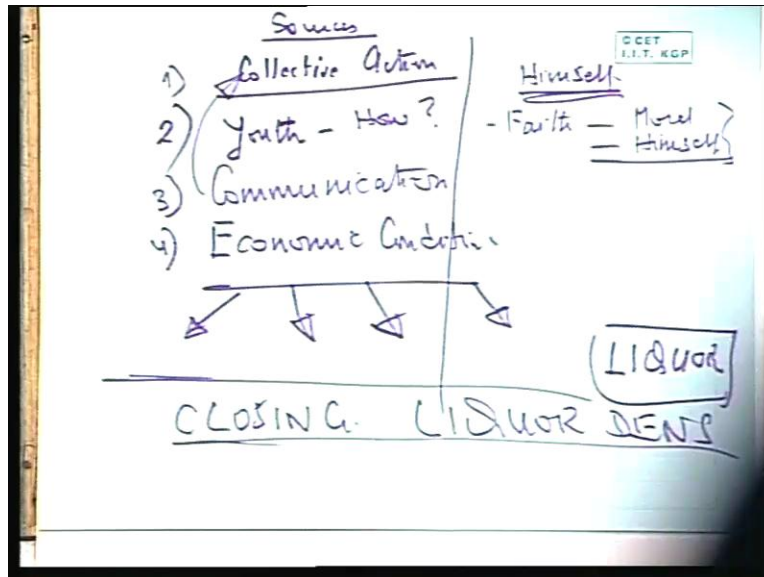 Sources
1) Collective Action
2) Youth - How?
3) Communication
4) Economic Condition
Himself
- Faith - Moral
- Himself
© CET
I.I.T. KGP
LIQUOR
CLOSING LIQUOR DENS